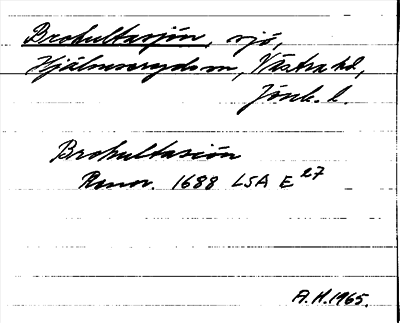 Brohultasjön, sjö,
Hjälmseryds sn, Västra hd,
Jönk. l.
Brohultasiön
Renov. 1688 LSA E 27
A.H. 1965.